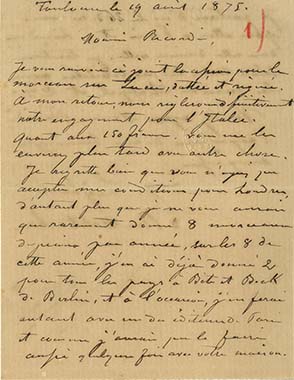 Toulouse le 19 avril 1875.
1)
Monsieur Ricordi,
Je vous renvoie ci joint la pour le
morceau sur Lucia, datée et signée.
À mon retour, nous règlerons définitivement
notre engagement pour l'Italie.
Quant aux 150 francs. Vous me les
enverrez plus tard avec autre chose.
Je regrette bien que vous n'ayez pu
accepter mes conditions pour Londres
d'autant plus que je ne vous aurais
que rarement donné 8 morceaux
de piano par année, sur les 8 de
cette année, j'en ai déjà donné 2
pour tous les pays à Bote et Bock
de Berlin, et à l'occasion, j'en ferai
autant avec un des éditeurs de
et comme j'aurais pu le faire
aussi quelques fois avec votre maison.